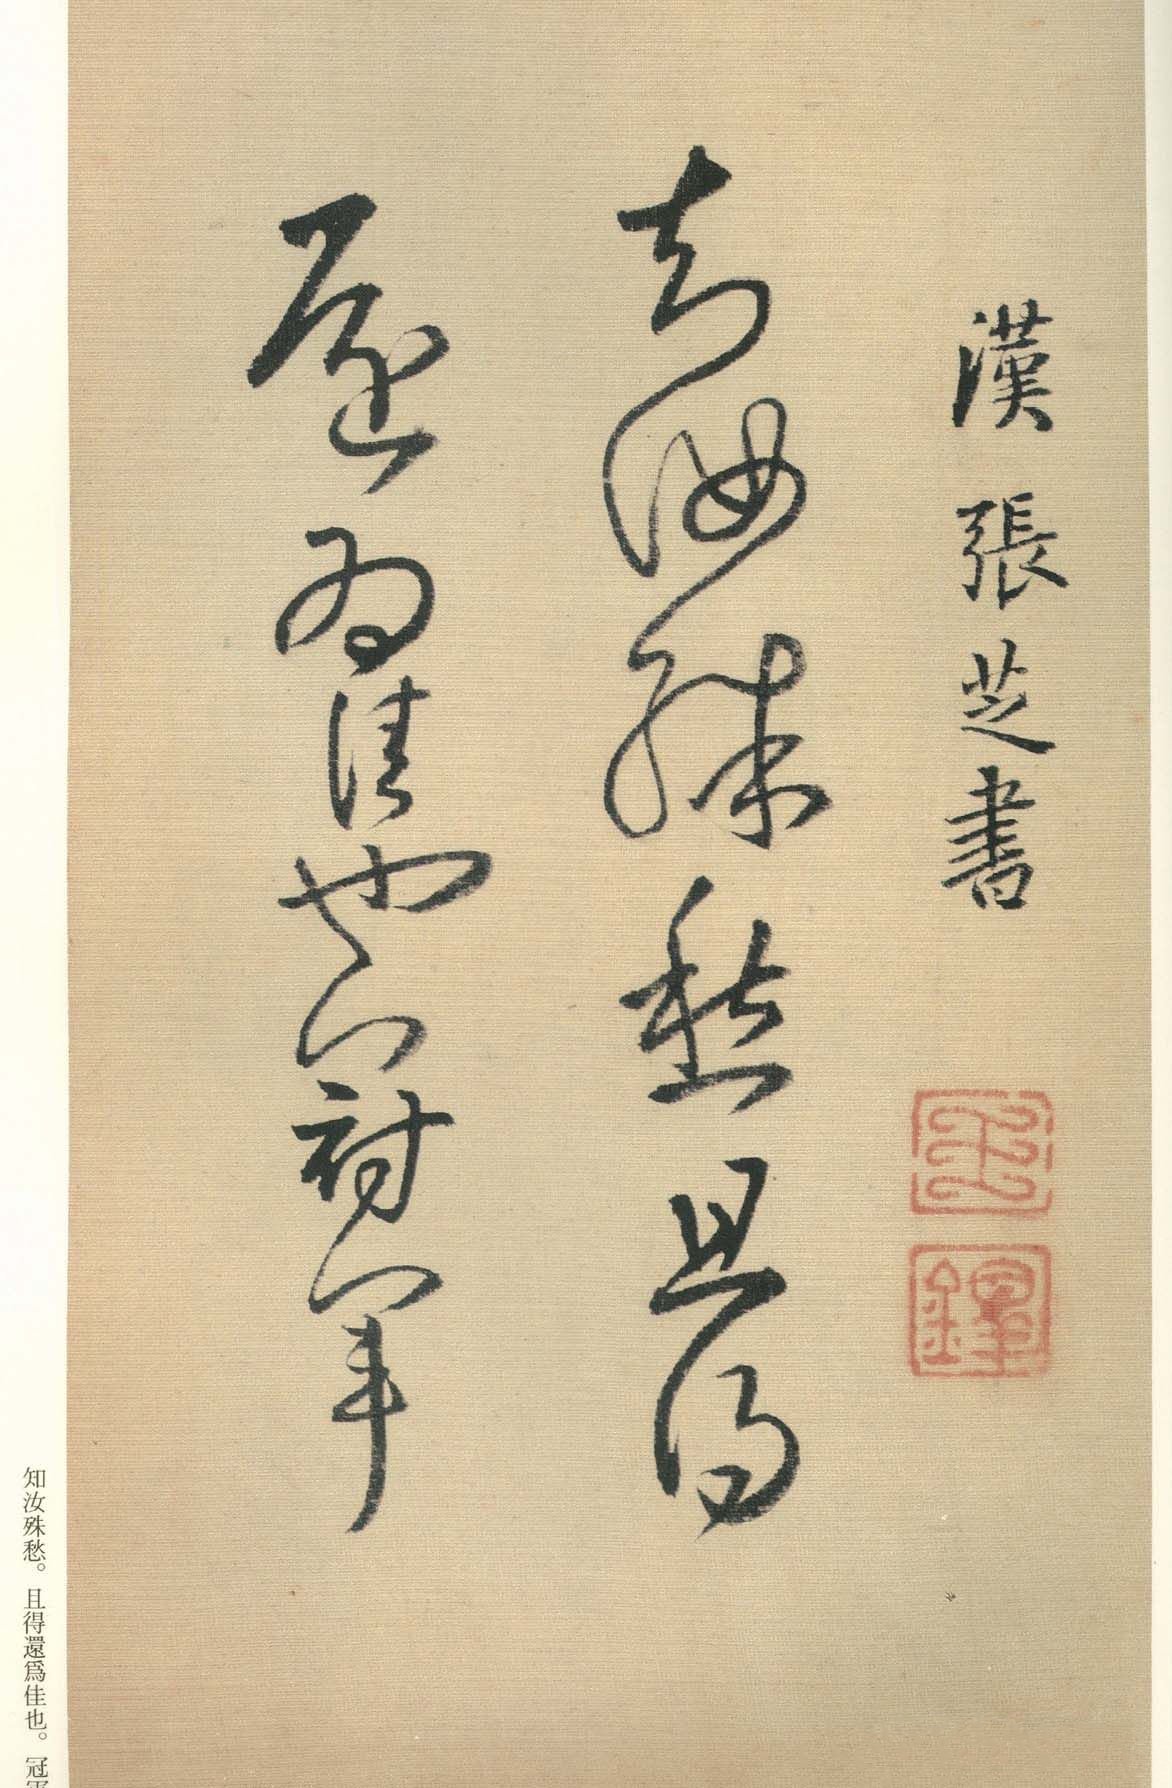 漢張芝書
王
鐸
知汝殊愁且得
還為佳也冠軍
知汝殊愁。且得還爲佳也。冠軍